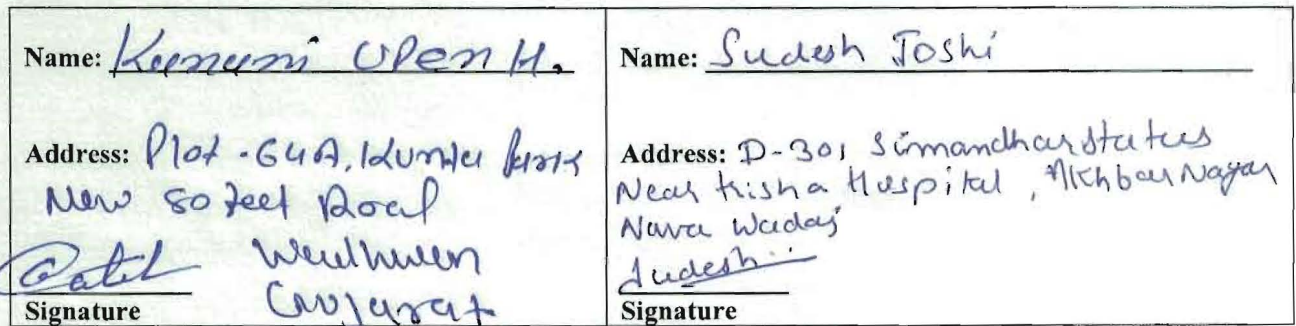 Name: Kumuni Upen H.
Address: Plot - 64A, Kunta Park
New 80 feet Road
Wadhwan
Gujarat
Signature
Name: Sudesh Joshi
Address: D-301 Simandhar status
Near Krisha Hospital, Akhbar Nagar
Nava Wadaj
Sudesh
Signature